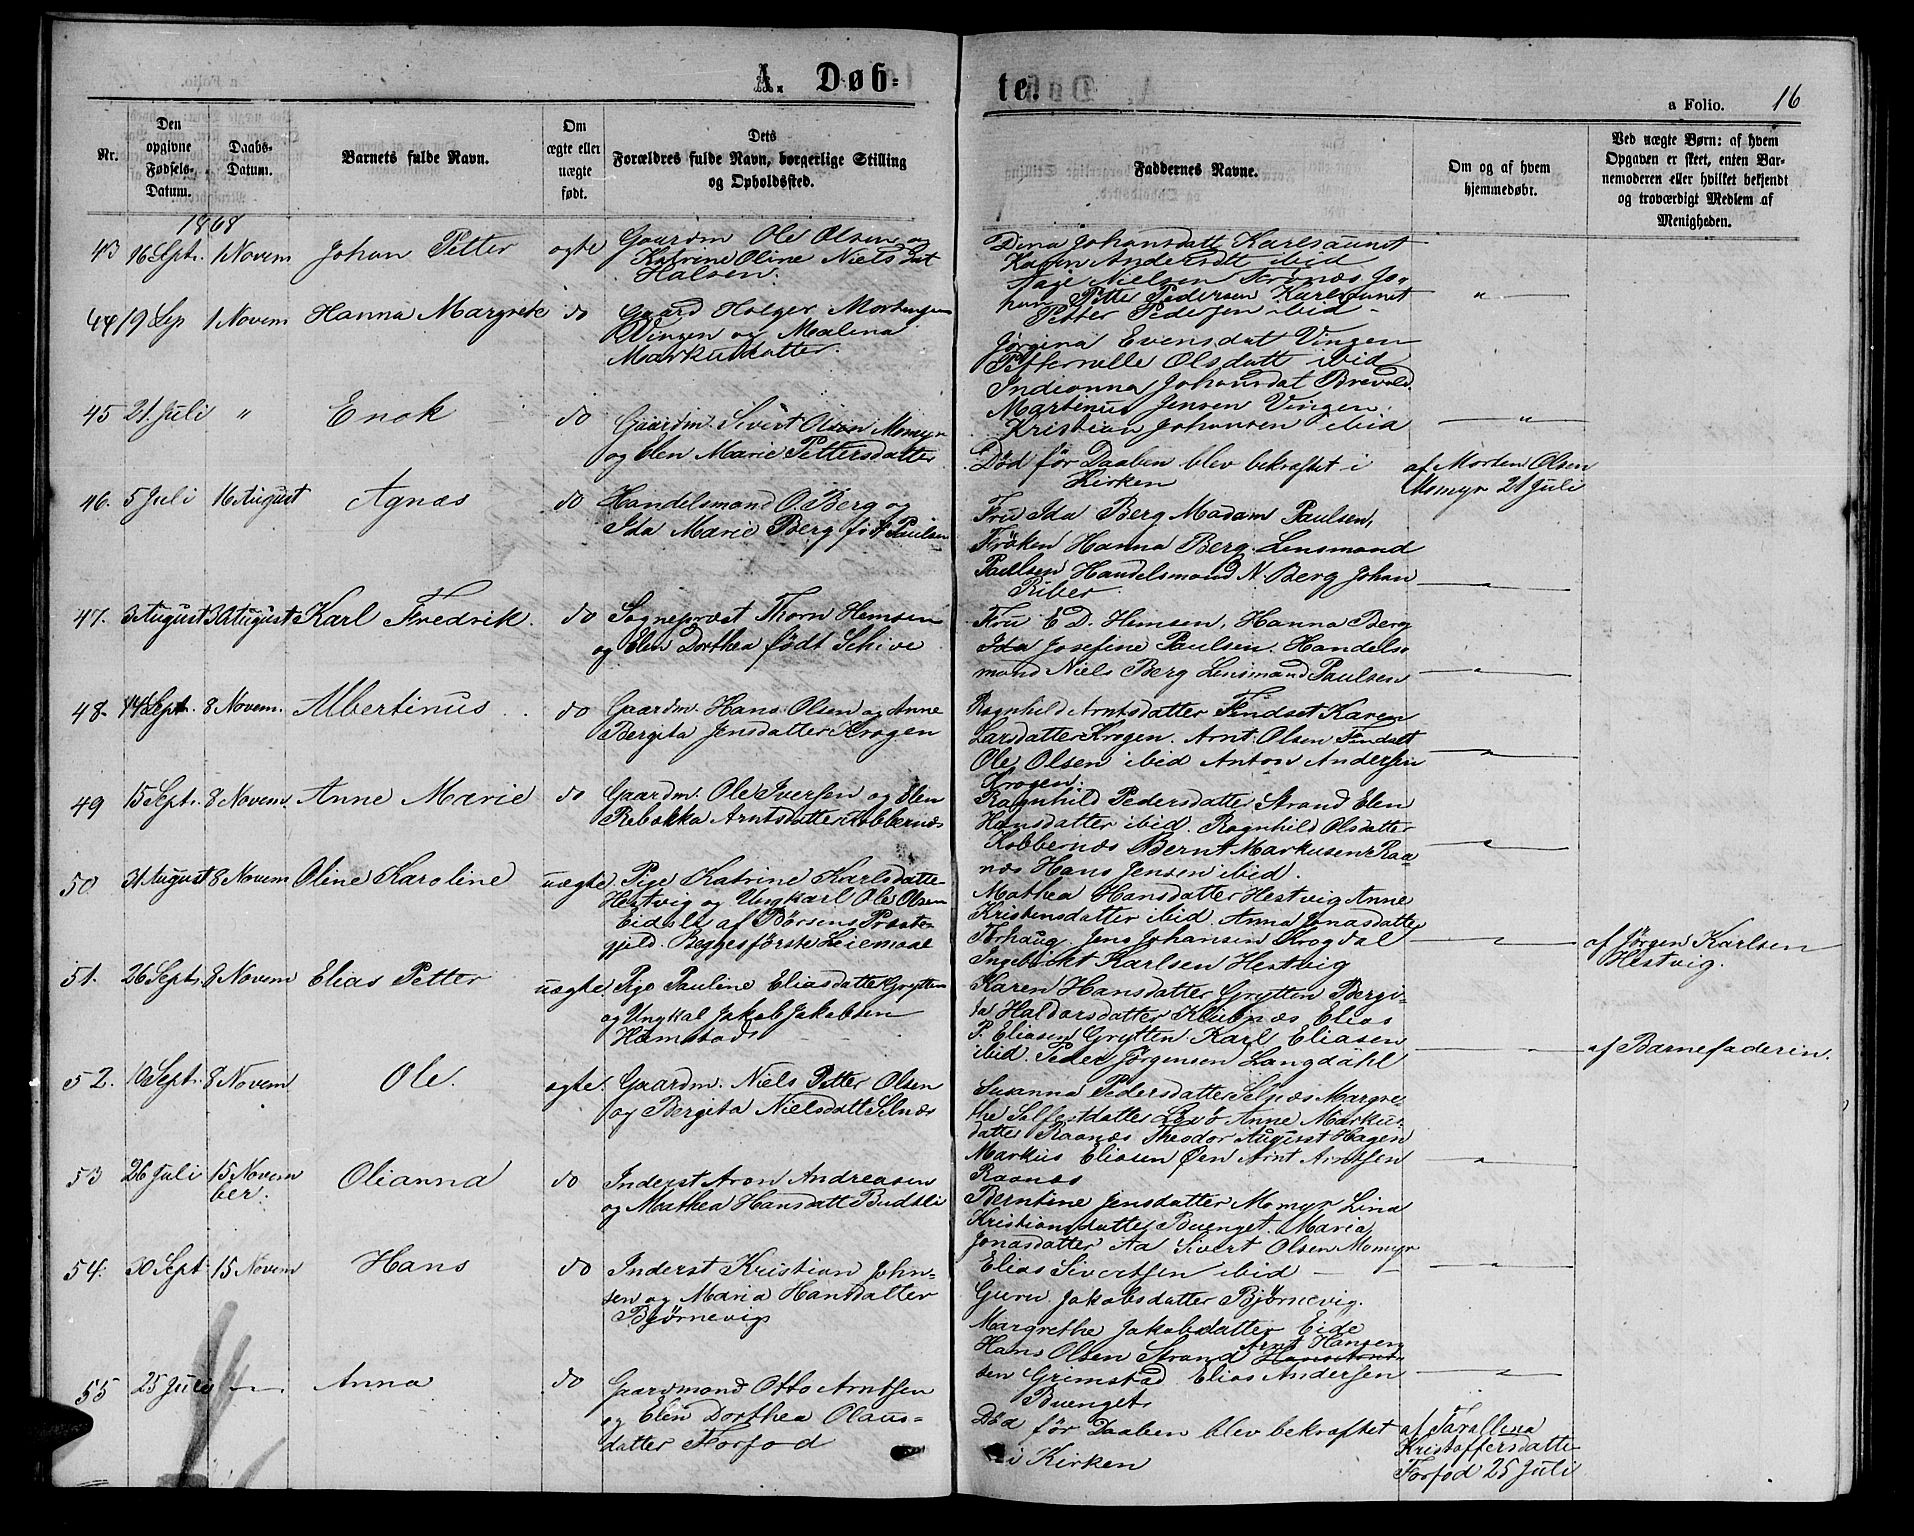 A. Døb=
te.
a Folio. 16
Nr.
Den opgivne Fødsels-Datum.
Daabs-Datum.
Barnets fulde Navn.
Om ægte eller uægte født.
Dets Forældres fulde Navn, borgerlige Stilling og Opholdssted.
Faddernes Navne.
Om og af hvem hjemmedøbt.
Ved uægte Børn: af hvem Opgaven er skeet, enten Barnemoderen eller hvilket bekjendt og troværdigt Medlem af Menigheden.
1868
43 16 Sept. 1 Novem Johan Petter ægte Gaardm Ole Olsen og
Katrine Oline Niels dat
Halsen.
Dina Johansdatt Karlsaunet
Karen Andersdtt ibid
Aage Nielsen Terønæs Jo-
han Petter Pedersen Karlsaunet "
Petter Pedersen ibid
44 19 Sep 1 Novem Hanna Margrete do Gaard Holger Mortensen
Vingen og Malena
Markusdatter.
Jørgina Evensdat Vingen
Pitternelle Olsdatt ibid
Indianna Johansdat Brevold
Martinus Jensen Vingen.
Kristian Johansen ibid "
45 21. Juli " Enok do Gaardm. Sivert Olsen Momyr
og Elen Marie Pettersdatter
Død før Daaben blev bekræftet i
Kirken
af Morten Olsen
Momyr 21 Juli
46. 5 Juli 16 August Agnæs do Handelsmand O. Berg og
Ida Marie Berg født Paulsen
Fru Ida Berg Madam Paulsen,
Frøken Hanna Berg. Lensmand
Paulsen Handelsmand N. Berg Johan "
Riber
47. 3 August 30 August Karl Fredrik. do Sogneprest Thorn Hemsen
og Elen Dorthea født Schive
Fru E D. Hemsen, Hanna Berg
Ida Josefine Paulsen. Handels-
mand Niels Berg Lensmand Paulsen "
48. 14 Sept. 8 Novem. Albertinus do Gaardm. Hans Olsen og Anne
Bergita Jensdatter Krogen
Ragnhild Arntsdatter Findset Karen
Larsdatter Krogen. Arnt Olsen Findset
Ole Olsen ibid Anton Andersen "
Krogen.
49 15 Sept. 8 Novem. Anne Marie do Gaardm. Ole Iversen og Elen
Rebakka Arntsdatter Kobbernæs
Ragnhild Pedersdatter Strand Elen
Hansdatter ibid. Ragnhild Olsdatter
Kobbernæs Bernt Markusen Raa- "
næs Hans Jensen ibid.
50 31 August 8 Novem Oline Karoline uægte Pige Katrine Karlsdatter
Hestvig og Ungkarl Ole Olsen
Eidsli af Børsens Præste-
gjeld. Begges første Leiemaal
Mathea Hansdatter Hestvig Anne
Kristensdatter ibid. Anna Jonasdatter
Terhaug. Jens Johansen Krogdal "
Ingebrikt Karlsen Hestvig
af Jørgen Karlsen
Hestvig.
51. 26 Sept. 8 Novem Elias Petter uægte. Pige Pauline Eliasdatter Grytten
og Ungkal Jakob Jakobsen
Hamstad
Karen Hansdatter Grytten Bergi-
ta Haldorsdatter Klubnæs Elias
P. Eliasen Grytten. Karl Eliasen
ibid. Peder Jørgensen Langdahl "
af Barnefaderin.
52. 10 Sept. 8 Novem Ole. ægte. Gaardm. Niels Petter Olsen
og Bergita Nielsdatt Selnæs
Susanna Pedersdatter Selnæs Margre-
the Salfestdatter Lexø Anne Marku-
datter Raanæs Theodor August Hagen
Markus Eliasen Øen Arnt Arntsen "
Raanæs
53 26 Juli 15 Novem
ber. Olianna do Inderst Aron Andreasen
og Mathea Hansdatt Budtli
Berntine Jensdatter Momyr Lina
Kristiansdatter Buenget. Maria
Jonasdatter Aa Sivert Olsen Momyr
Elias Sivertsen ibid "
54. 30 Sept 15 Novem Hans do Inderst Kristian John-
sen og Maria Hansdatter
Bjørnevig
Guru Jakobsdatter Bjørnevig.
Margrethe Jakobsdatter Eide
Hans Olsen Strand Arnt Hansen
sen Grimstad Elias Andersen "
Buenget
55 25 Juli " Anna do Gaardmand Otto Arntsen
og Elen Dorthea Olaus-
datter Forfod
Død før Daaben blev bekræftet
i Kirken
af Tarallena
Kristoffersdatte
Forfod 25 Juli